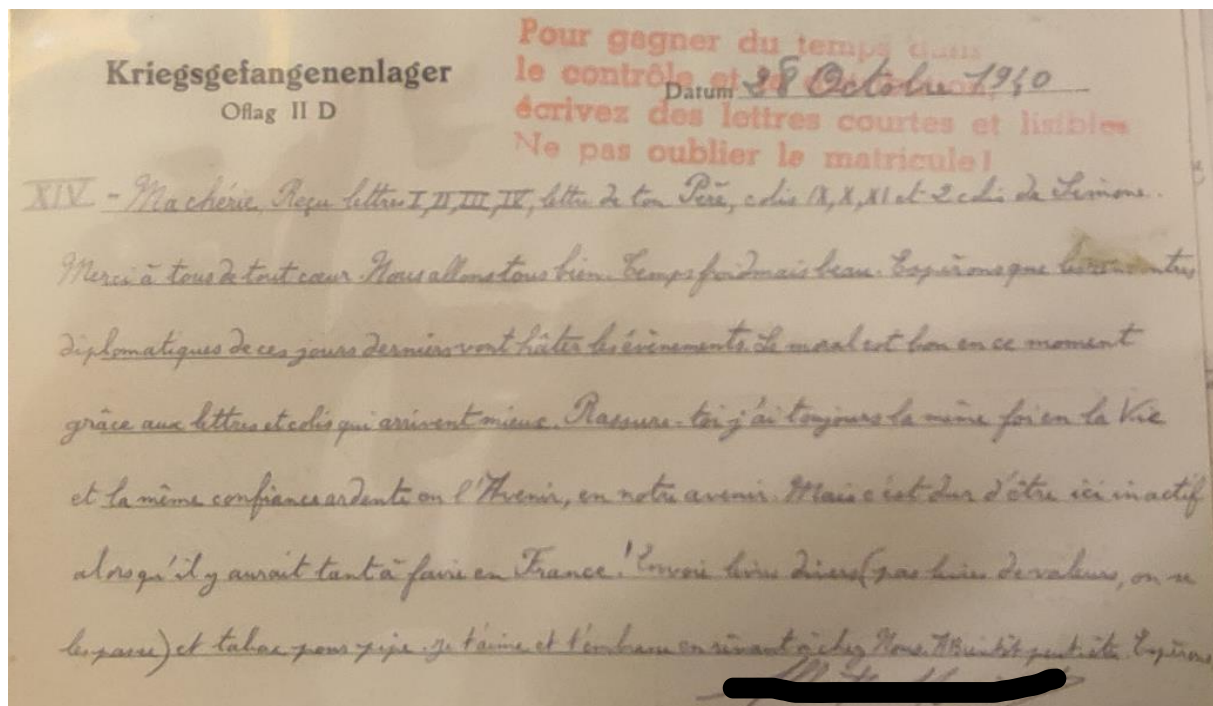 Kriegsgefangenenlager
Oflag II D
Pour gagner du temps dans
le contrôle et
écrivez des lettres courtes et lisibles
Ne pas oublier le matricule!
Datum 28 Octobre 1940
XIV - Ma chérie, Reçu lettres I, II, III, IV, lettre de ton Père, colis IX, X, XI et 2 colis de Simone.
Merci à tous de tout cœur. Nous allons tous bien. Temps froid mais beau. Espérons que les rencontres
diplomatiques de ces jours derniers vont hâter les évènements. Le moral est bon en ce moment
grâce aux lettres et colis qui arrivent mieux. Rassure-toi j'ai toujours la même foi en la Vie
et la même confiance ardente en l'Avenir, en notre avenir. Mais c'est dur d'être ici inactif
alors qu'il y aurait tant à faire en France! Envoie livres divers (pas livres de valeurs, on se
les passe) et tabac pour pipe. Je t'aime et t'embrasse en rêvant à chez Nous. A Bientôt peut-être. Espérons